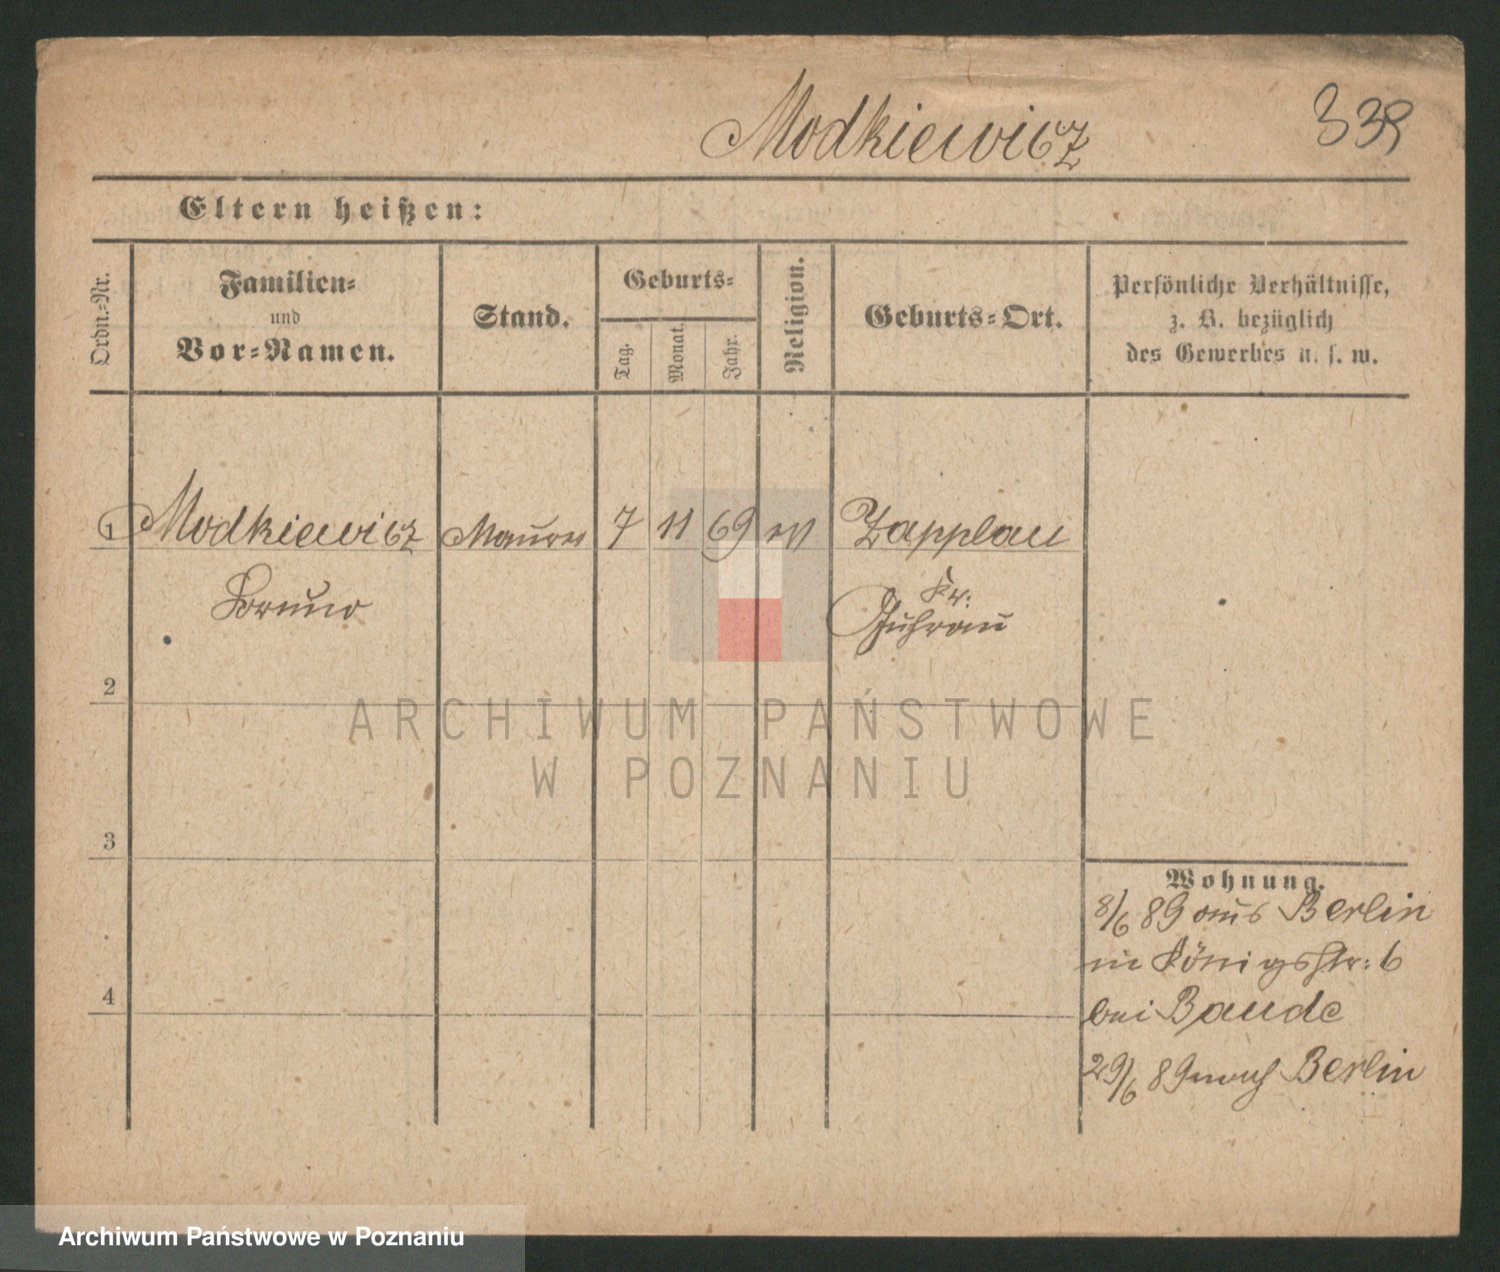 Modkiewicz
339
Eltern heißen:
Ordn.-Nr.
Familien-
und
Vor-Namen.
Stand.
Geburts-
Tag.
Monat.
Jahr.
Religion.
Geburts-Ort.
Persönliche Verhältnisse,
z. B. bezüglich
des Gewerbes u. s. w.
1 Modkiewicz Maurer 7 11 69 ev Zapplau
Bruno
Kr:
Guhrau
2
3
4
Wohnung.
8/6 89 aus Berlin
in Königsstr: 6
bei Baude
29/6 89 nach Berlin
ARCHIWUM PAŃSTWOWE
W POZNANIU
Archiwum Państwowe w Poznaniu